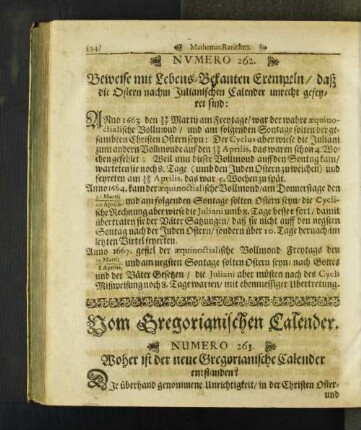 134 Mathemat. Raritäten.
NVMERO 262.
Beweise mit Lebens-Bekanten Exempeln/ daß
die Ostern nachm Julianischen Calender unrecht gefey-
ret sind:
ANno 1663. den Martij am Freytage/ war der wahre æquino-
ctialische Vollmond/ und am folgenden Sontage solten der ge-
sambten Christen Ostern seyn: Der Cyclus aber wiese die Juliani
zum andern Vollmonde auf den Aprilis, das waren schon 4. Wo-
chen gefehlet: Weil nun dieser Vollmond auff den Sontag kam/
warteten sie noch 8. Tage (umb den Juden Ostern zu weichen) und
feyreten am Aprilis, das war 5. Wochen zu spät.
Anno 1664. kam der æquinoctialische Vollmond/ am Donnerstage den
31. Martij und am folgenden Sontage solten Ostern seyn/ die Cycli-
sche Rechnung aber wiese die Juliani umb 8. Tage besser fort/ damit
übertraten sie der Väter Satzungen/ daß sie nicht auff den nechsten
Sontag nach der Juden Ostern/ sondern über 10. Tage hernach im
letzten Virtel feyerten.
Anno 1667. gefiel der æquinoctialische Vollmond Freytags den
Martij und am negsten Sontage solten Ostern seyn/ nach Gottes
8. Aprilis,
und der Väter Gesetzen/ die Juliani aber müsten nach des Cycli
Mißweisung noch 8. Tage warten/ mit ebenmessiger Ubertretung.
Vom Gregorianischen Calender.
NUMERO 263.
Woher ist der neue Gregorianische Calender
entstanden?
DIe überhand genommene Unrichtigkeit/ in der Christen Oster-
und